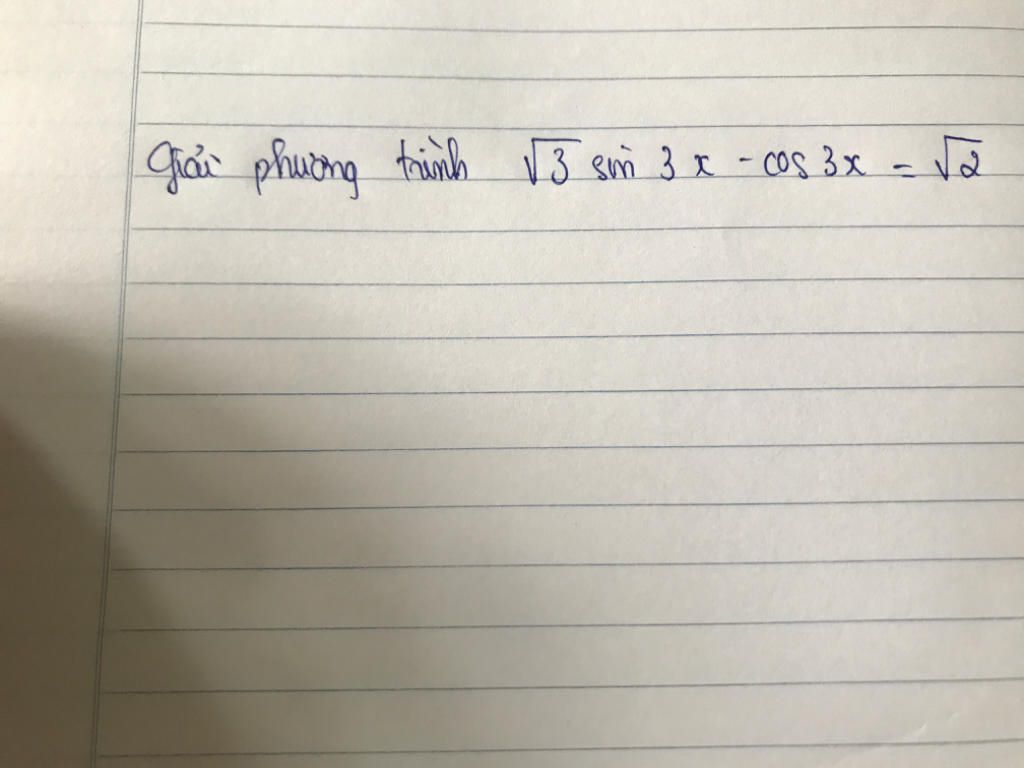 Giải phương trình √3 sin 3x - cos 3x = √2